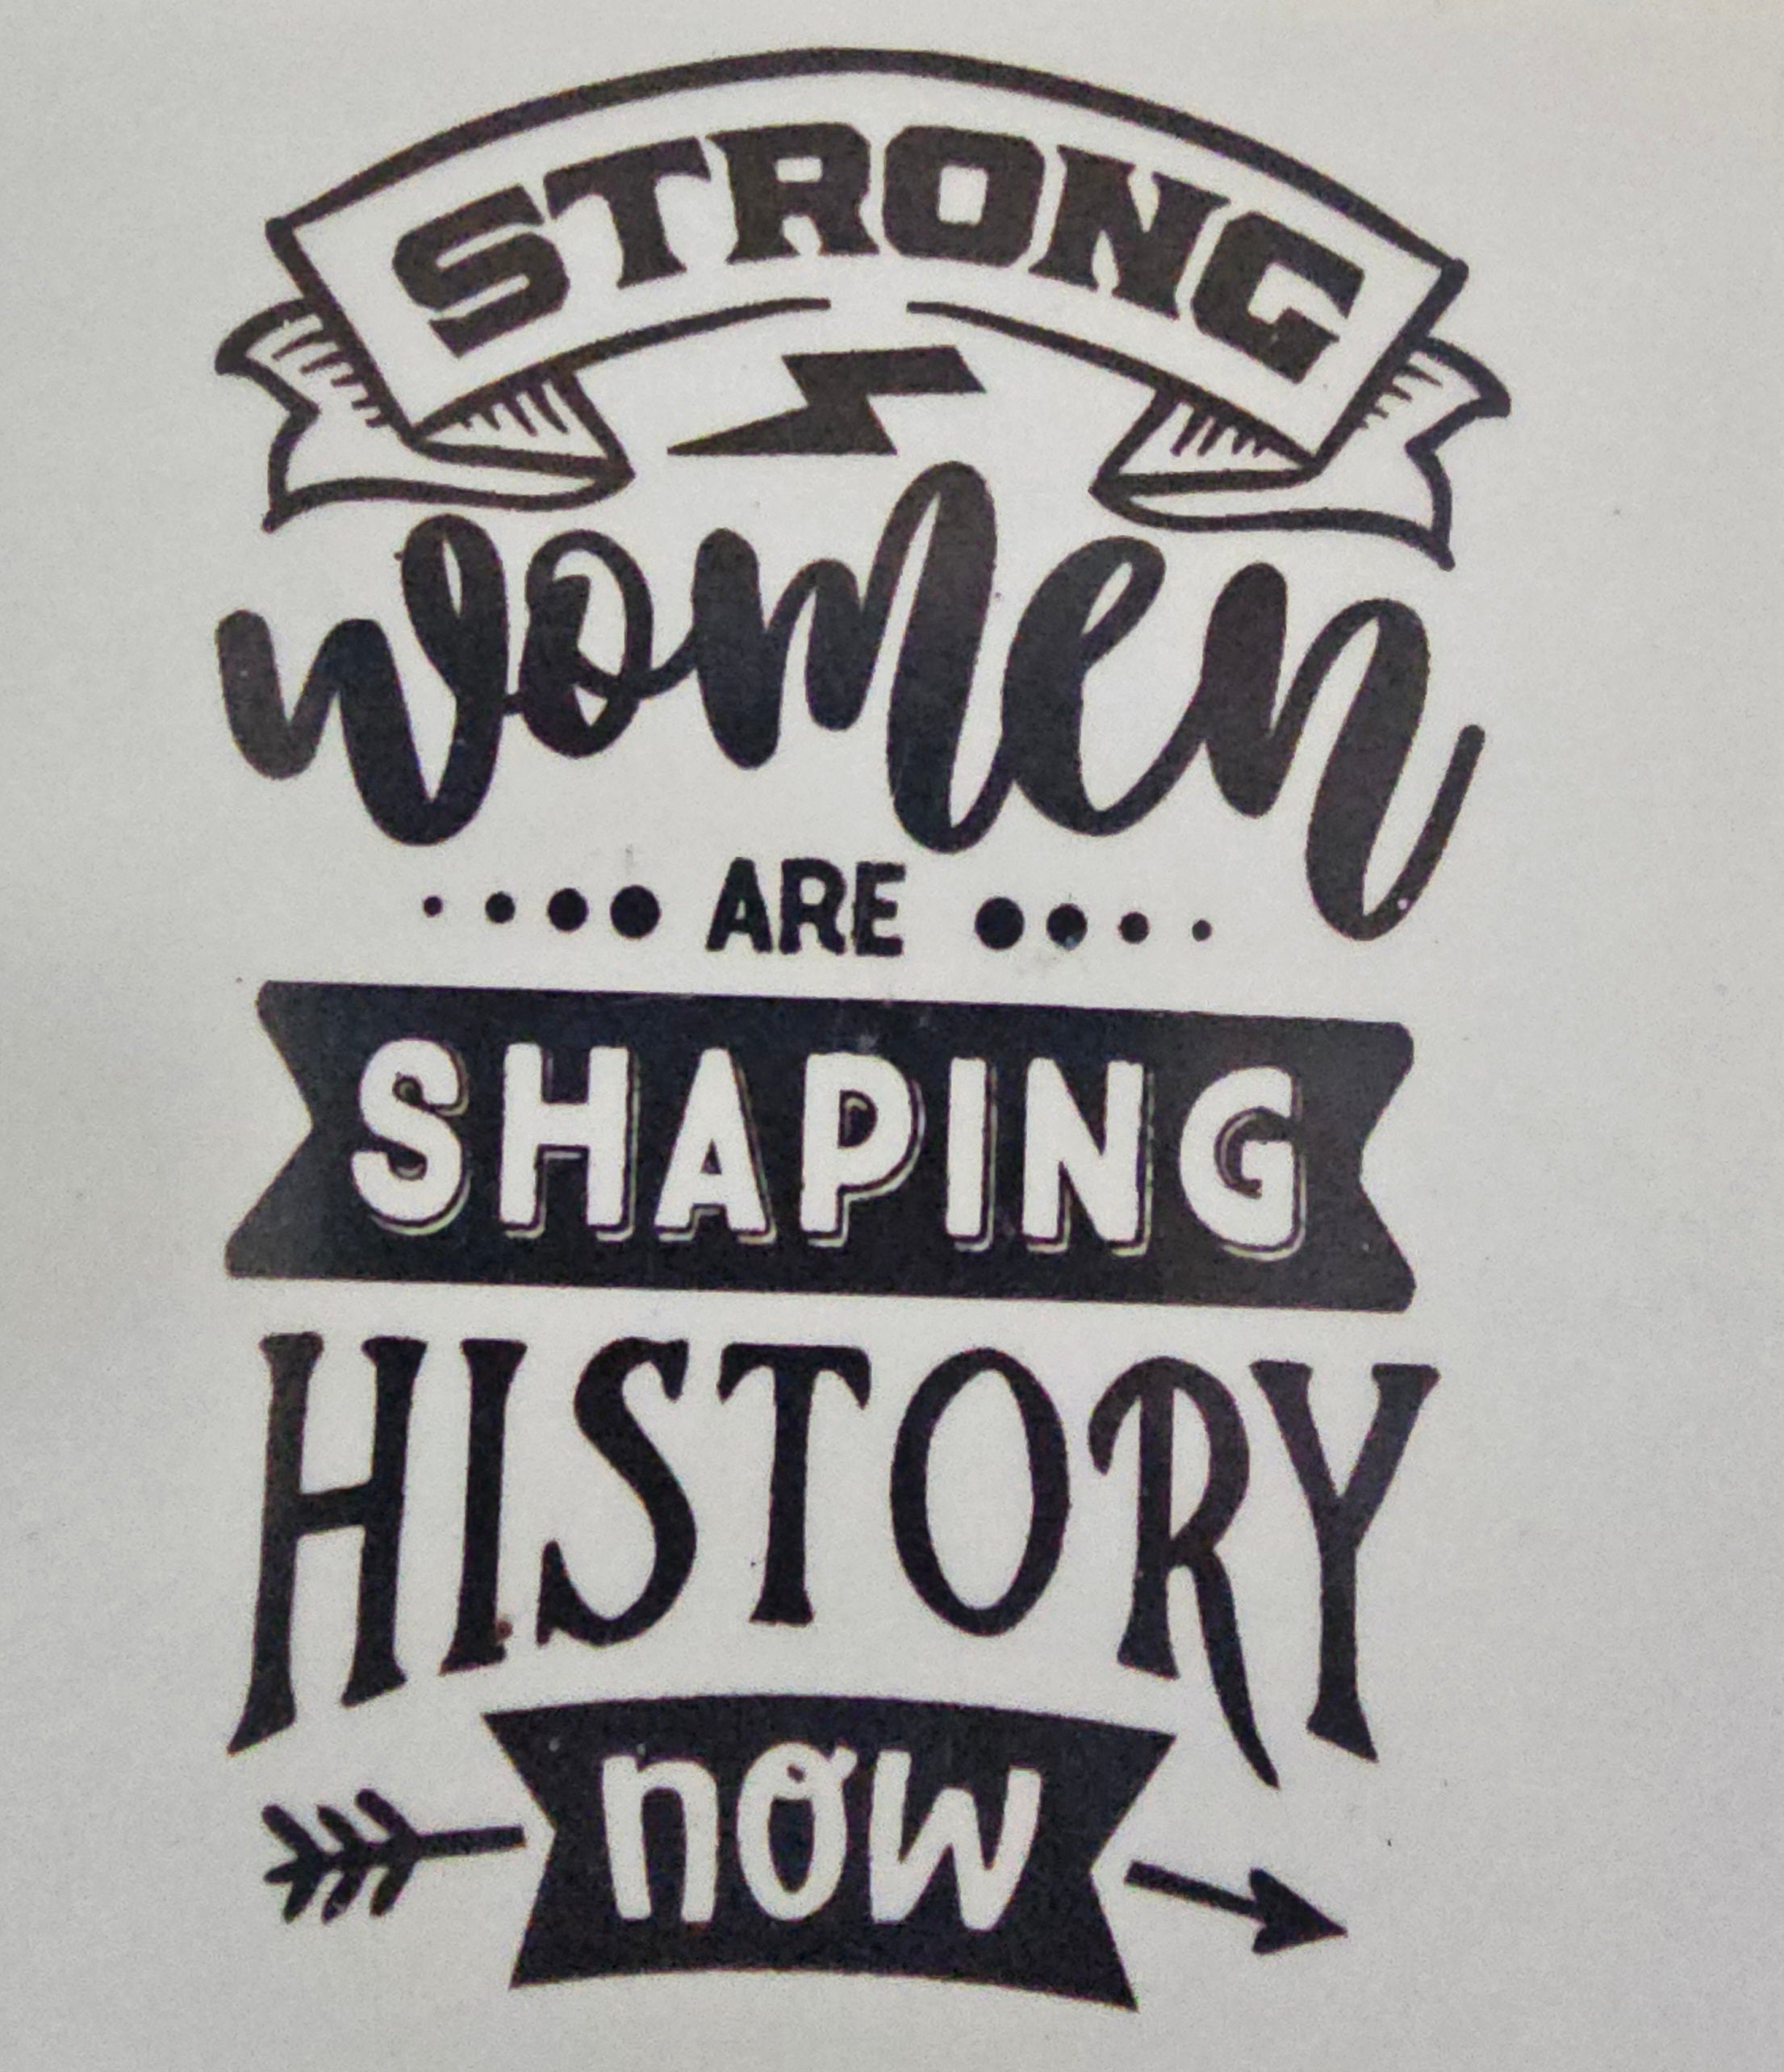 STRONG
women
ARE
SHAPING
HISTORY
now